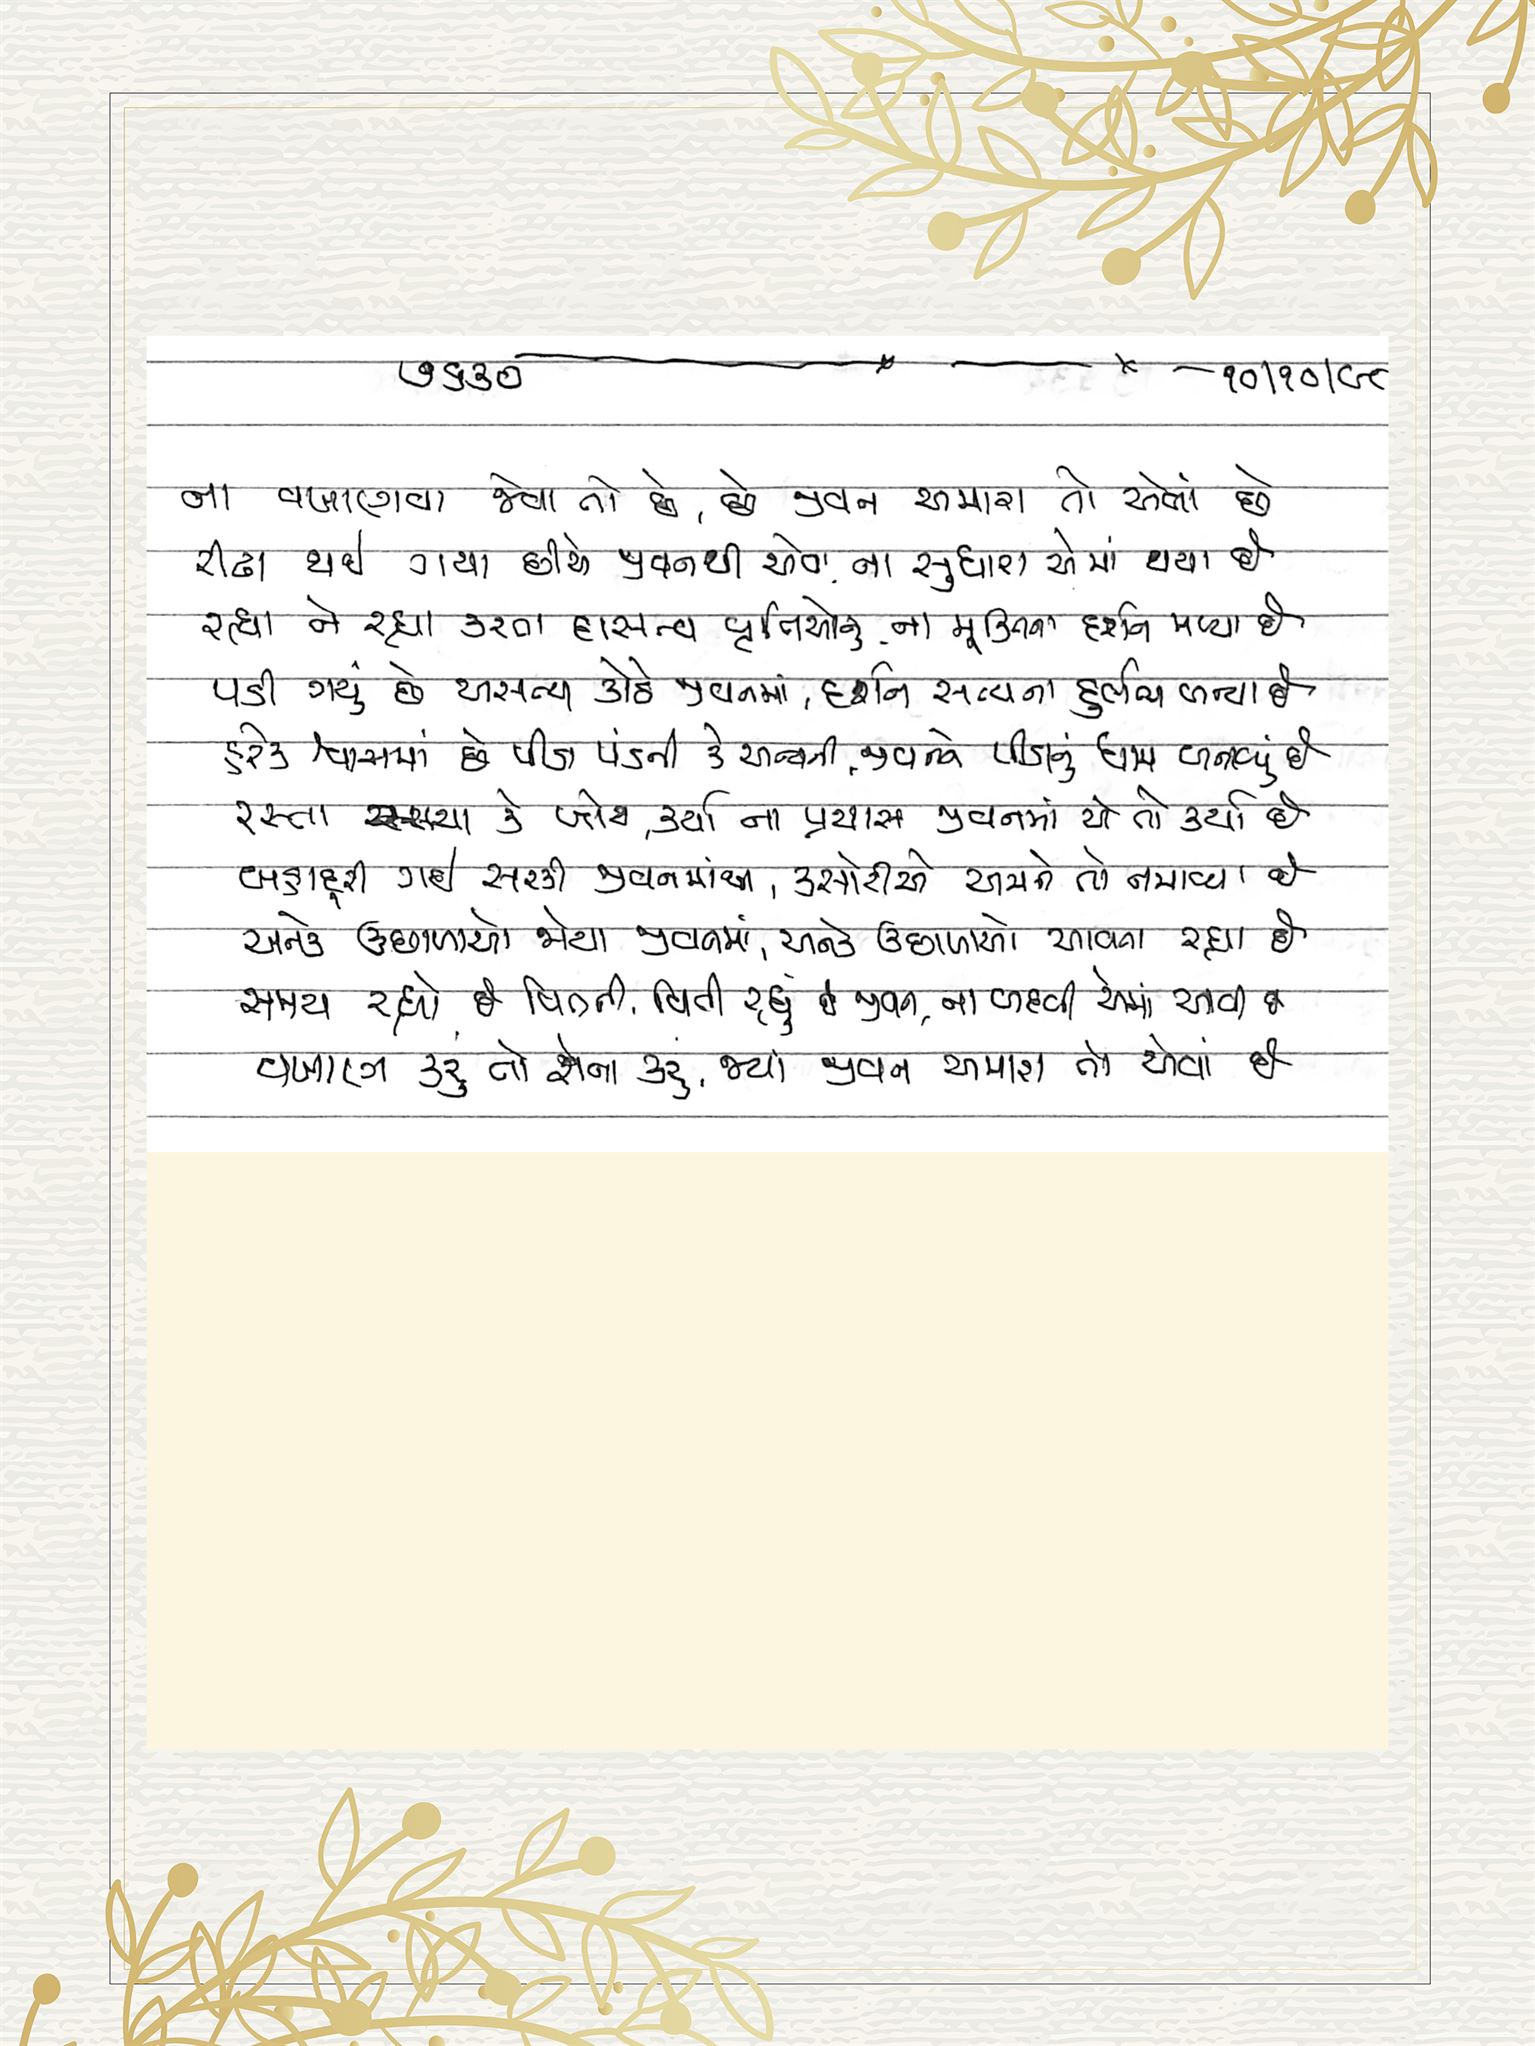 ૭૬૩૦ ૧૦/૧૦/૯૮
ના વખાણવા જેવા તો છે, છે જીવન અમારા તો એવાં છે
રીઢા થઈ ગયા છીએ જીવનથી એવા, ના સુધારા એમાં થયા છે
રહ્યા ને રહ્યા કરતા અસત્ય વૃત્તિઓનું, ના મુક્તિના દર્શન મળ્યા છે
પડી ગયું છે અસત્ય કોઠે જીવનમાં, દર્શન સત્યના દુર્લભ બન્યા છે
દરેક શ્વાસમાં છે પીડા પંડની કે અન્યની, જીવનને પીડાનું ધામ બનાવ્યું છે
રસ્તા કે જોયા, કર્યા ના પ્રયાસ જીવનમાં એ તો કર્યા છે
બહાદુરી ગઈ સરકી જીવનમાંથી, કસોટીએ અમને તો નમાવ્યા છે
અનેક ઉછાળાઓ જોયા જીવનમાં, અનેક ઉછાળાઓ આવતા રહ્યા છે
સમય રહ્યો છે વિતતો, વિતી રહ્યું છે જીવન, ના બદલી એમાં આવી છે
વખાણ કરું તો કોના કરું, જ્યાં જીવન અમારા તો એવાં છે